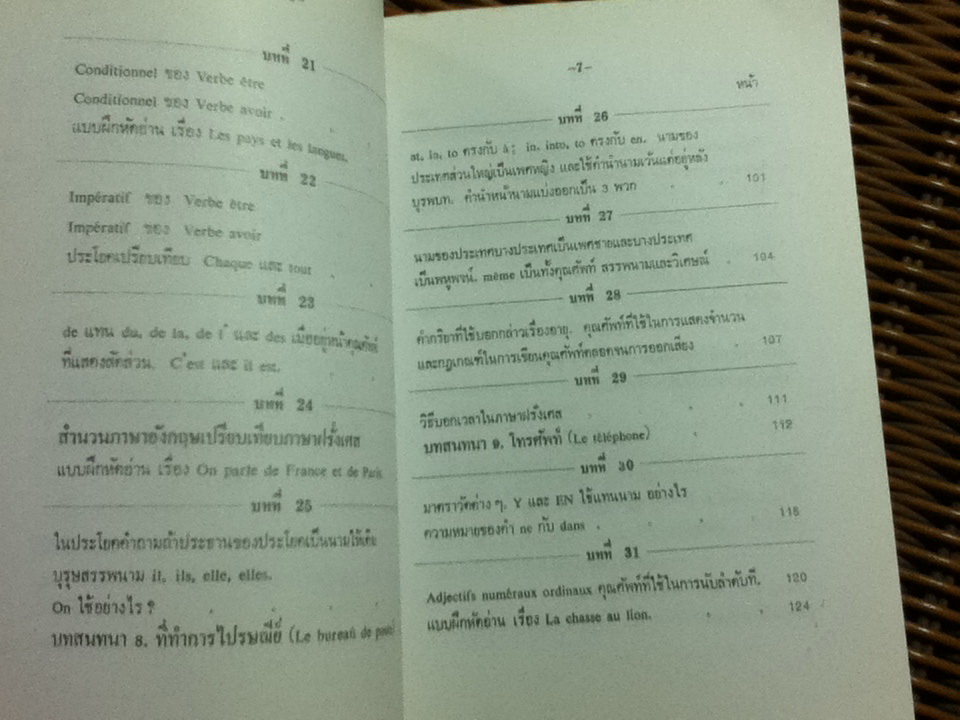 บทที่ 21
Conditionnel ของ Verbe être
Conditionnel ของ Verbe avoir .
แบบฝึกหัดอ่าน เรื่อง Les pays et les langues.
บทที่ 22
Impératif ของ Verbe être
Impératif ของ Verbe avoir
ประโยคเปรียบเทียบ Chaque และ tout
บทที่ 23
de แทน du, de la, de l' และ des เมื่ออยู่หน้าคุณศัพท์
ที่แสดงสัดส่วน. C'est และ il est.
บทที่ 24
สำนวนภาษาอังกฤษเปรียบเทียบภาษาฝรั่งเศส
แบบฝึกหัดอ่าน เรื่อง On parle de France et de Paris
บทที่ 25
ในประโยคคำถามถ้าประธานของประโยคเป็นนามให้เติม
บุรุษสรรพนาม il, ils, elle, elles.
On ใช้อย่างไร ?
บทสนทนา 8. ที่ทำการไปรษณีย์ (Le bureau de poste)
–7–
หน้า
บทที่ 26
at, in, to ตรงกับ à ; in, into, to ตรงกับ en. นามของ
ประเทศส่วนใหญ่เป็นเพศหญิง และใช้คำนำนามเว้นแต่อยู่หลัง
บุรพบท. คำนำหน้านามแบ่งออกเป็น 3 พวก 101
บทที่ 27
นามของประเทศบางประเทศเป็นเพศชายและบางประเทศ
เป็นพหูพจน์. même เป็นทั้งคุณศัพท์ สรรพนามและวิเศษณ์ . 104
บทที่ 28
คำกริยาที่ใช้บอกกล่าวเรื่องอายุ. คุณศัพท์ที่ใช้ในการแสดงจำนวน
และกฎเกณฑ์ในการเขียนคุณศัพท์ตลอดจนการออกเสียง 107
บทที่ 29
วิธีบอกเวลาในภาษาฝรั่งเศส 111
บทสนทนา ๑. โทรศัพท์ (Le téléphone) 112
บทที่ 30
มาตราวัดต่าง ๆ. Y และ EN ใช้แทนนาม อย่างไร
ความหมายของคำ ne กับ dans . 115
บทที่ 31
Adjectifs numéraux ordinaux คุณศัพท์ที่ใช้ในการนับลำดับที่. 120
แบบฝึกหัดอ่าน เรื่อง La chasse au lion. 124